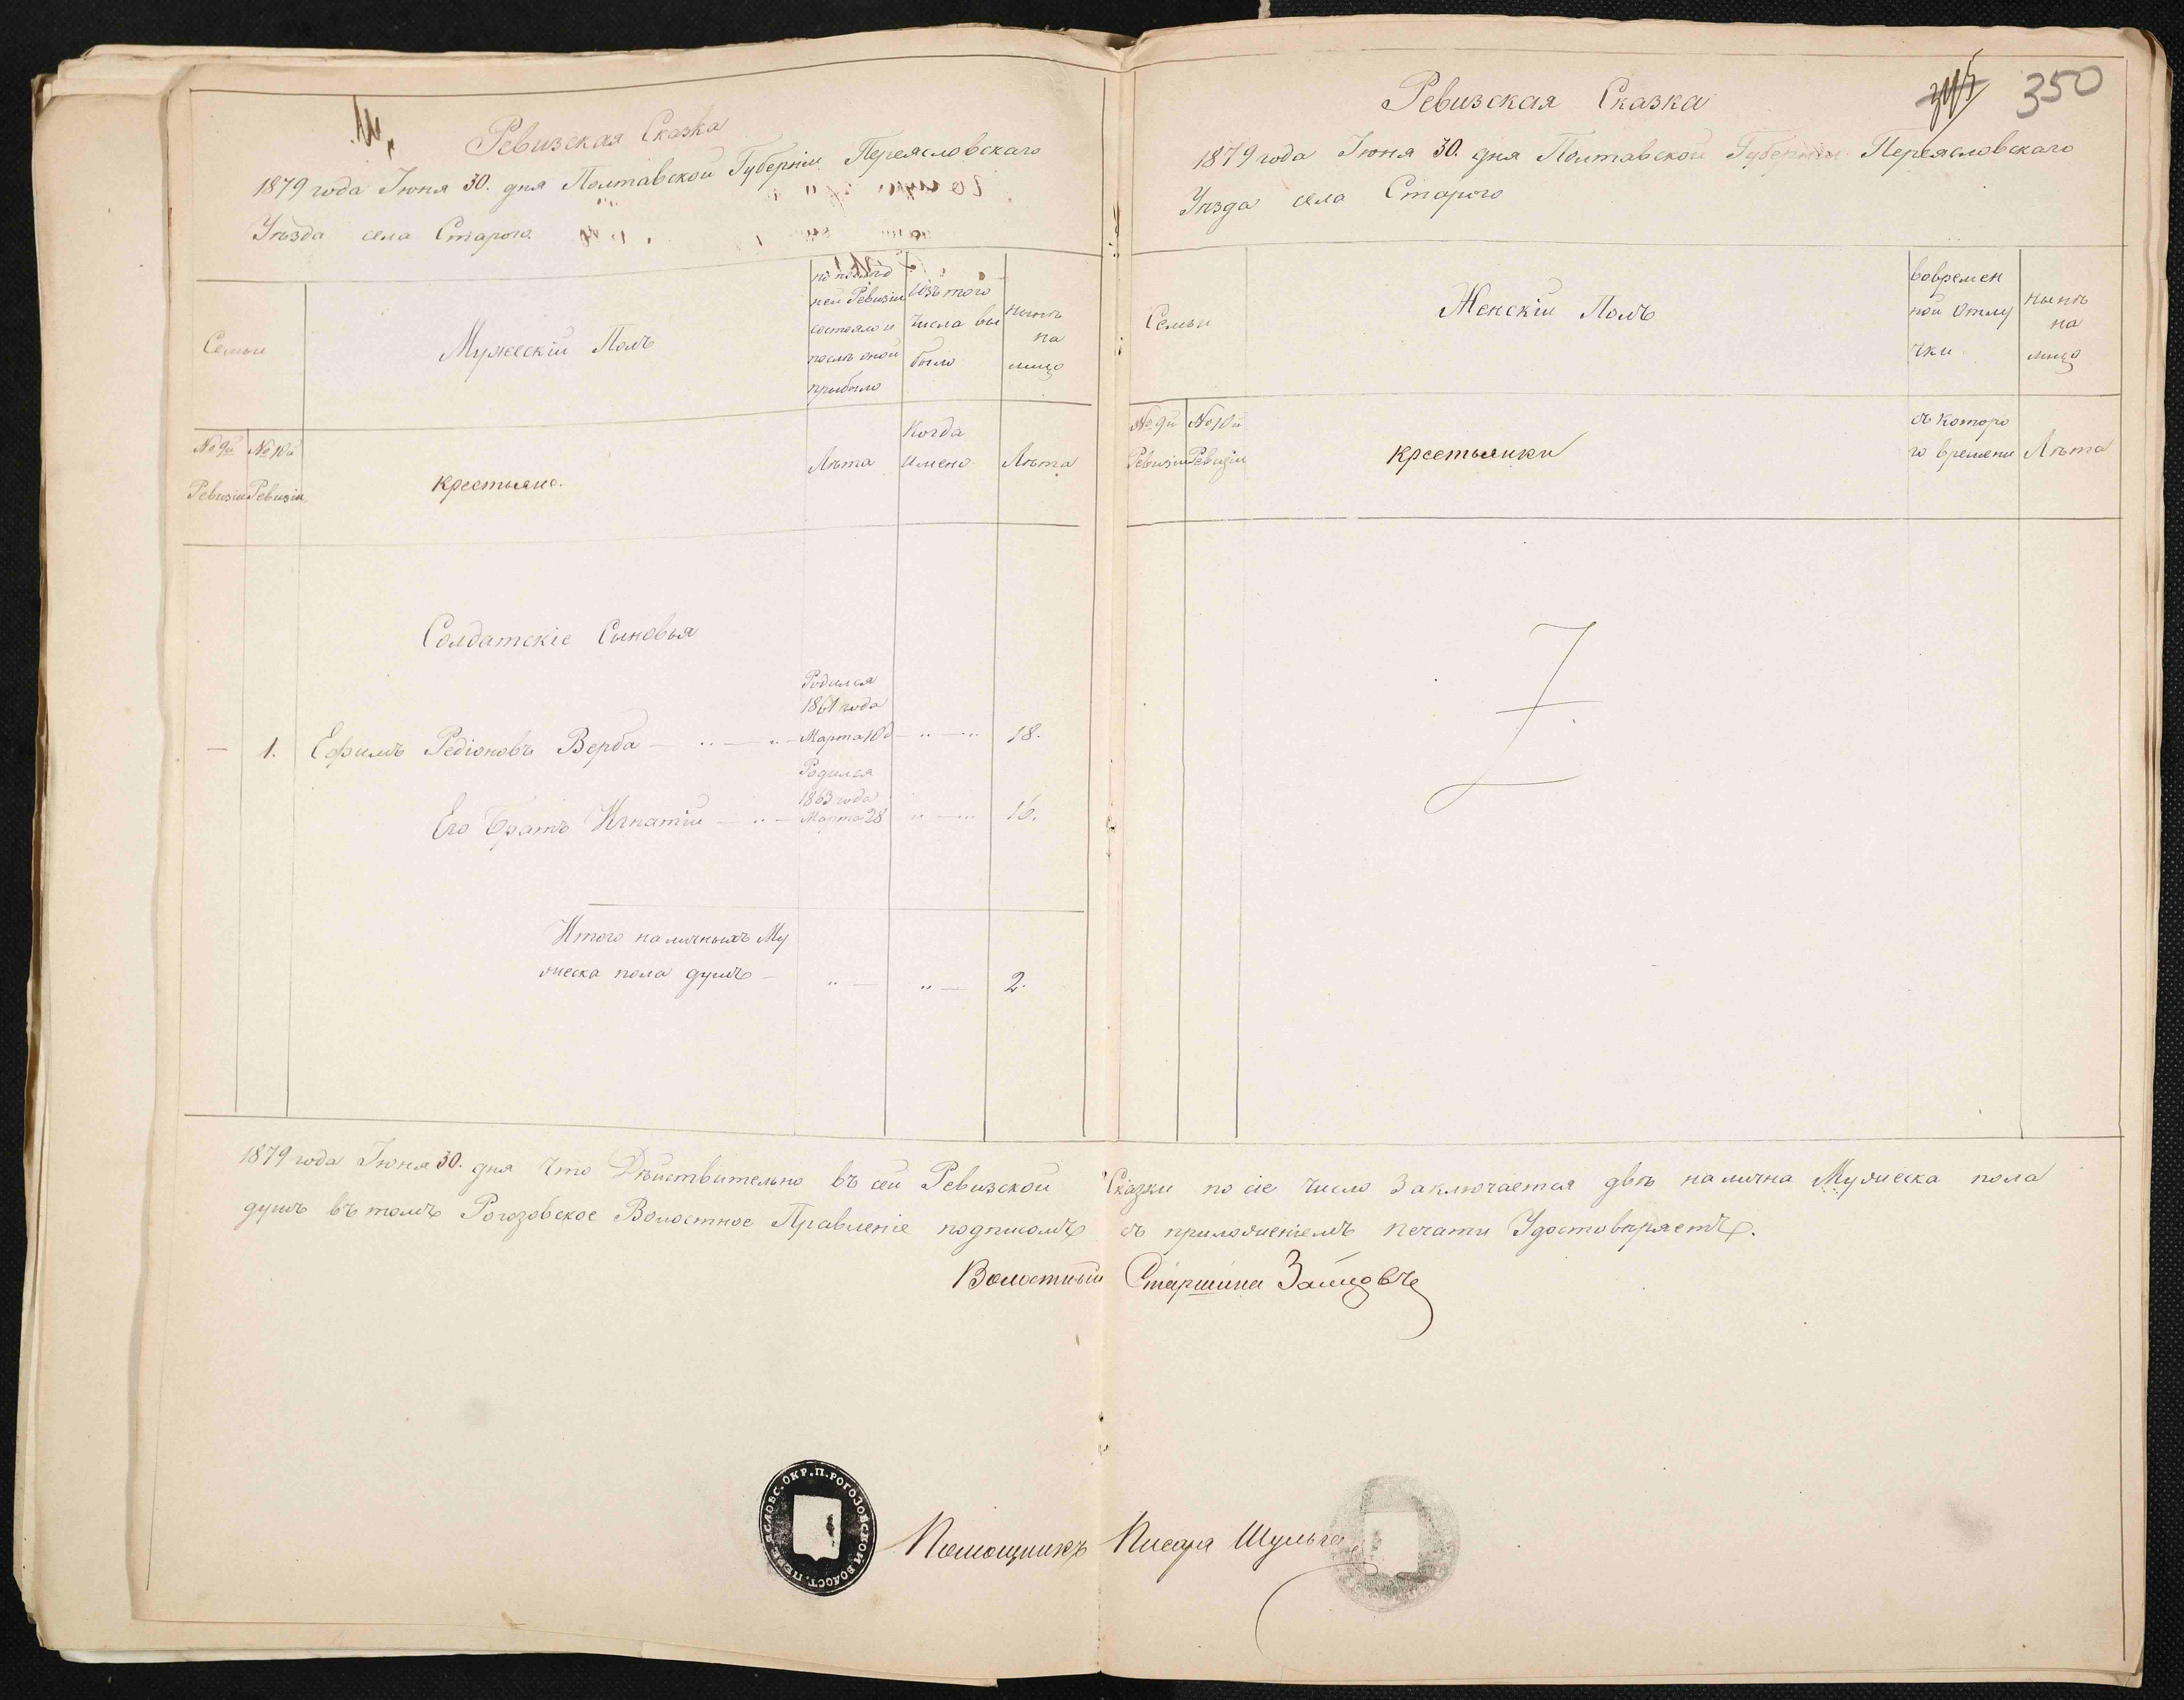 Ревизская Сказка
1879 года Іюня 30. дня Полтавской Губерніи Переясловскаго
Уѣзда села Старого
Семьи
Мужескій Полъ
по послѣд
ней Ревизіи
состояло и
послѣ оной
прибыло
Изъ того
числа вы
было
нынѣ
на
лицо
№ 9й
Ревизіи
№ 10й
Ревизіи
крестьяне.
Лѣта
Когда
имено
Лѣта
Солдатскіе Сыновья
Родился
1861 года
— 1. Ефимъ Редіоновъ Верба — Марта 10 д — 18.
Родился
1863 года
Его Братъ Игнатій — Марта 28 — 16.
Итого наличныхъ Му
жеска пола душъ — 2.
350
Ревизская Сказка
1879 года Іюня 30. дня Полтавской Губерніи Переясловскаго
Уѣзда села Старого
Семьи
Женскій Полъ
вовремен
ной отлу
чки
нынѣ
на
лицо
№ 9й
Ревизіи
№ 10й
Ревизіи
крестьянки
съ которо
го времени
Лѣта
1879 года Іюня 30. дня Что Дѣйствительно въ сей Ревизской Сказки по сіе число Заключается двѣ налична Мужеска пола
душъ въ томъ Рогозовское Волостное Правленіе подписомъ съ приложеніемъ печати Удостовѣряетъ.
Волостный Старшина Зайцовъ
ПЕРЕЯСЛОВС. ОКР. П. РОГОЗОВСКОЙ ВОЛОСТ.
Помощникъ Писаря Шульга